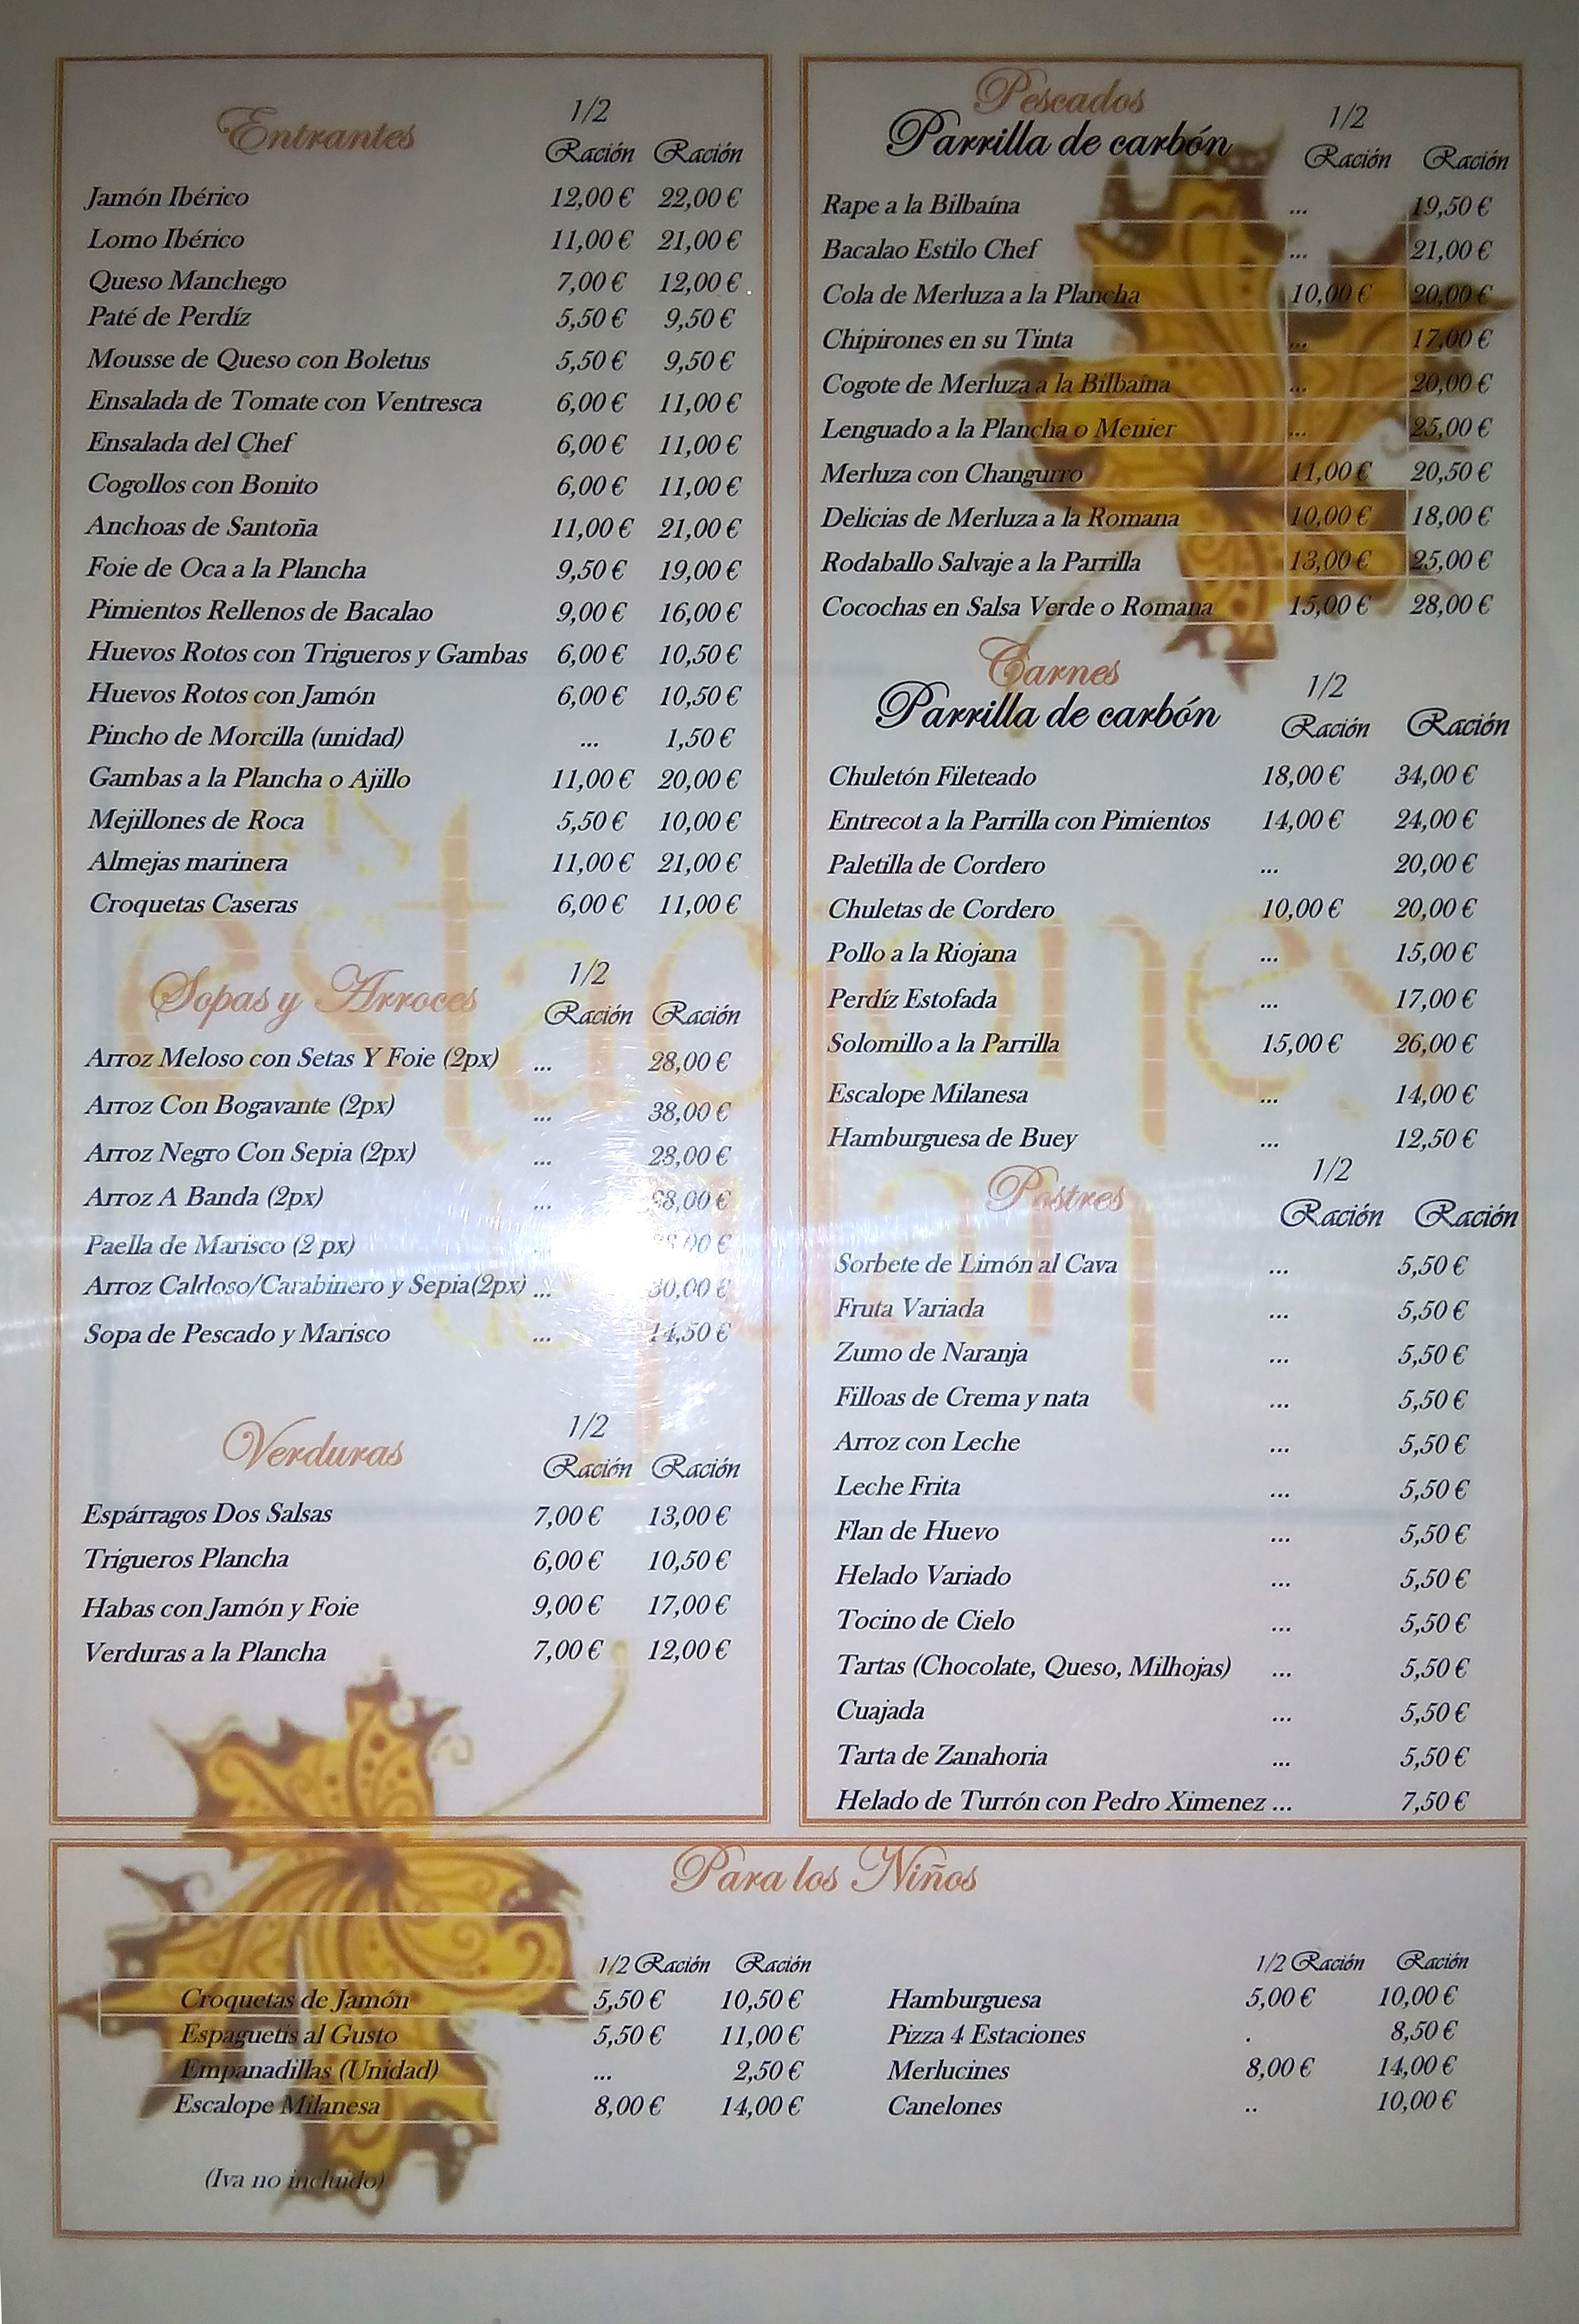 Entrantes
1/2
Ración Ración
Jamón Ibérico 12,00 € 22,00 €
Lomo Ibérico 11,00 € 21,00 €
Queso Manchego 7,00 € 12,00 €
Paté de Perdíz 5,50 € 9,50 €
Mousse de Queso con Boletus 5,50 € 9,50 €
Ensalada de Tomate con Ventresca 6,00 € 11,00 €
Ensalada del Chef 6,00 € 11,00 €
Cogollos con Bonito 6,00 € 11,00 €
Anchoas de Santoña 11,00 € 21,00 €
Foie de Oca a la Plancha 9,50 € 19,00 €
Pimientos Rellenos de Bacalao 9,00 € 16,00 €
Huevos Rotos con Trigueros y Gambas 6,00 € 10,50 €
Huevos Rotos con Jamón 6,00 € 10,50 €
Pincho de Morcilla (unidad) ... 1,50 €
Gambas a la Plancha o Ajillo 11,00 € 20,00 €
Mejillones de Roca 5,50 € 10,00 €
Almejas marinera 11,00 € 21,00 €
Croquetas Caseras 6,00 € 11,00 €
Sopas y Arroces
1/2
Ración Ración
Arroz Meloso con Setas Y Foie (2px) ... 28,00 €
Arroz Con Bogavante (2px) ... 38,00 €
Arroz Negro Con Sepia (2px) ... 28,00 €
Arroz A Banda (2px) ...
Paella de Marisco (2 px)
Arroz Caldoso/Carabinero y Sepia(2px) ... 30,00 €
Sopa de Pescado y Marisco ... 14,50 €
Verduras
1/2
Ración Ración
Espárragos Dos Salsas 7,00 € 13,00 €
Trigueros Plancha 6,00 € 10,50 €
Habas con Jamón y Foie 9,00 € 17,00 €
Verduras a la Plancha 7,00 € 12,00 €
Pescados
Parrilla de carbón
1/2
Ración Ración
Rape a la Bilbaína ... 19,50 €
Bacalao Estilo Chef ... 21,00 €
Cola de Merluza a la Plancha 10,00 € 20,00 €
Chipirones en su Tinta ... 17,00 €
Cogote de Merluza a la Bilbaína ... 20,00 €
Lenguado a la Plancha o Menier ... 25,00 €
Merluza con Changurro 11,00 € 20,50 €
Delicias de Merluza a la Romana 10,00 € 18,00 €
Rodaballo Salvaje a la Parrilla 13,00 € 25,00 €
Cocochas en Salsa Verde o Romana 15,00 € 28,00 €
Carnes
Parrilla de carbón
1/2
Ración Ración
Chuletón Fileteado 18,00 € 34,00 €
Entrecot a la Parrilla con Pimientos 14,00 € 24,00 €
Paletilla de Cordero ... 20,00 €
Chuletas de Cordero 10,00 € 20,00 €
Pollo a la Riojana ... 15,00 €
Perdíz Estofada ... 17,00 €
Solomillo a la Parrilla 15,00 € 26,00 €
Escalope Milanesa ... 14,00 €
Hamburguesa de Buey ... 12,50 €
Postres
1/2
Ración Ración
Sorbete de Limón al Cava ... 5,50 €
Fruta Variada ... 5,50 €
Zumo de Naranja ... 5,50 €
Filloas de Crema y nata ... 5,50 €
Arroz con Leche ... 5,50 €
Leche Frita ... 5,50 €
Flan de Huevo ... 5,50 €
Helado Variado ... 5,50 €
Tocino de Cielo ... 5,50 €
Tartas (Chocolate, Queso, Milhojas) ... 5,50 €
Cuajada ... 5,50 €
Tarta de Zanahoria ... 5,50 €
Helado de Turrón con Pedro Ximenez ... 7,50 €
Para los Niños
1/2 Ración Ración
Croquetas de Jamón 5,50 € 10,50 €
Espaguetis al Gusto 5,50 € 11,00 €
Empanadillas (Unidad) ... 2,50 €
Escalope Milanesa 8,00 € 14,00 €
1/2 Ración Ración
Hamburguesa 5,00 € 10,00 €
Pizza 4 Estaciones . 8,50 €
Merlucines 8,00 € 14,00 €
Canelones .. 10,00 €
(Iva no incluido)
estaciones